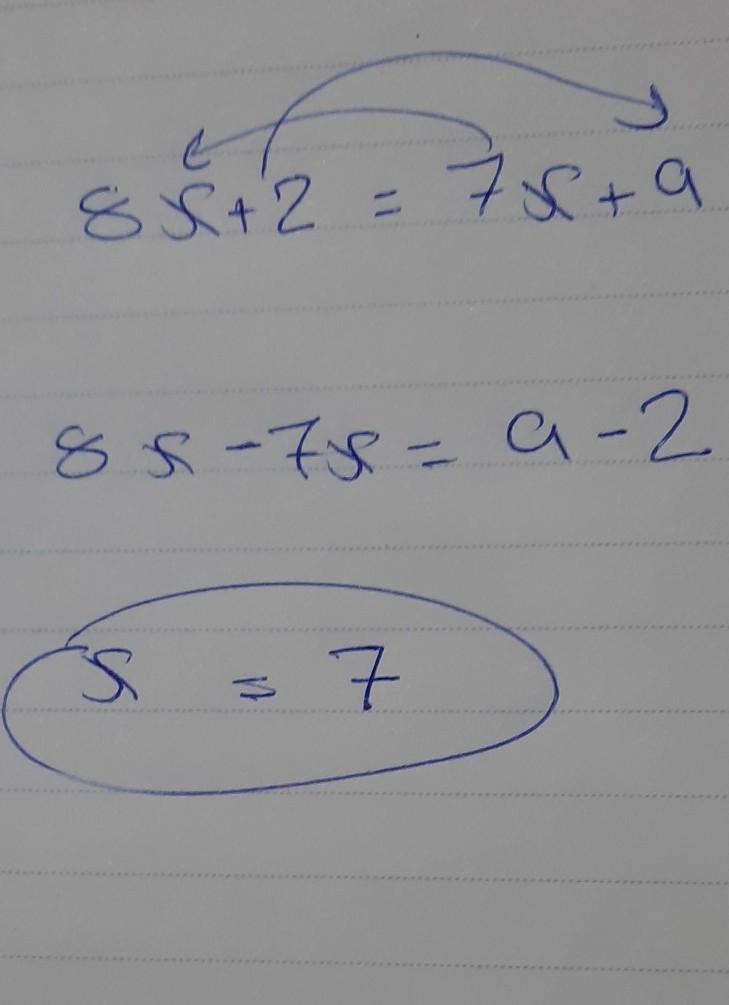 8x+2 = 7x+9
8x-7x = 9-2
x = 7